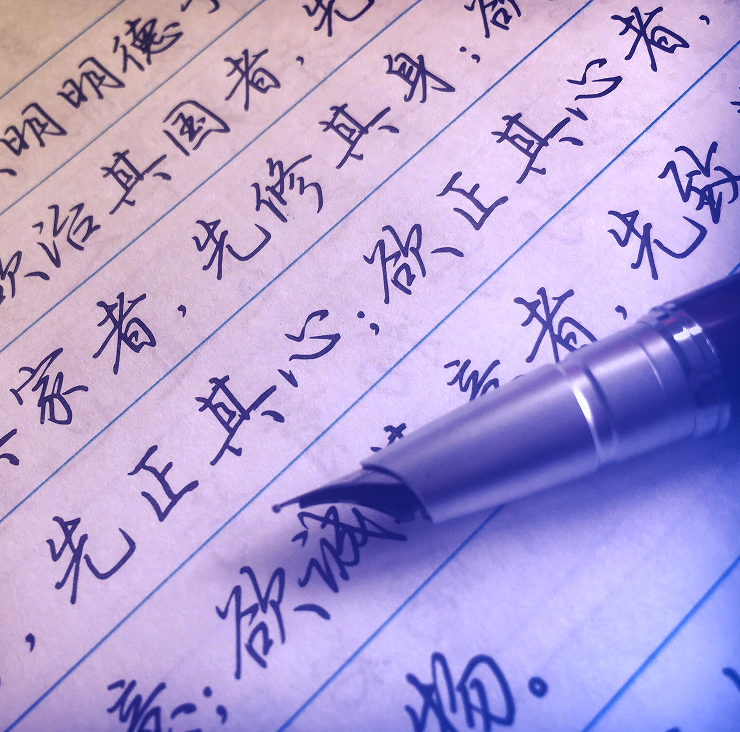 明明德
欲治其国者，先
家者，先修其身；欲
，先正其心；欲正其心者，
意；欲诚其意者，先致
物。